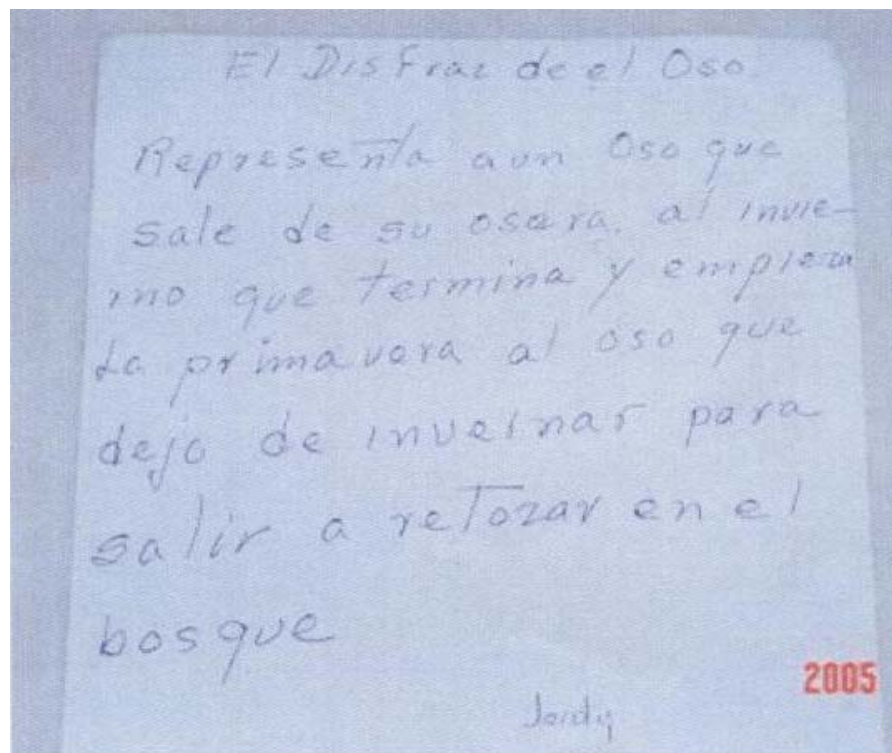 El Disfraz de el Oso
Representa a un Oso que
sale de su osera, al invie-
rno que termina y empieza
La primavera al oso que
dejo de invernar para
salir a retozar en el
bosque
2005